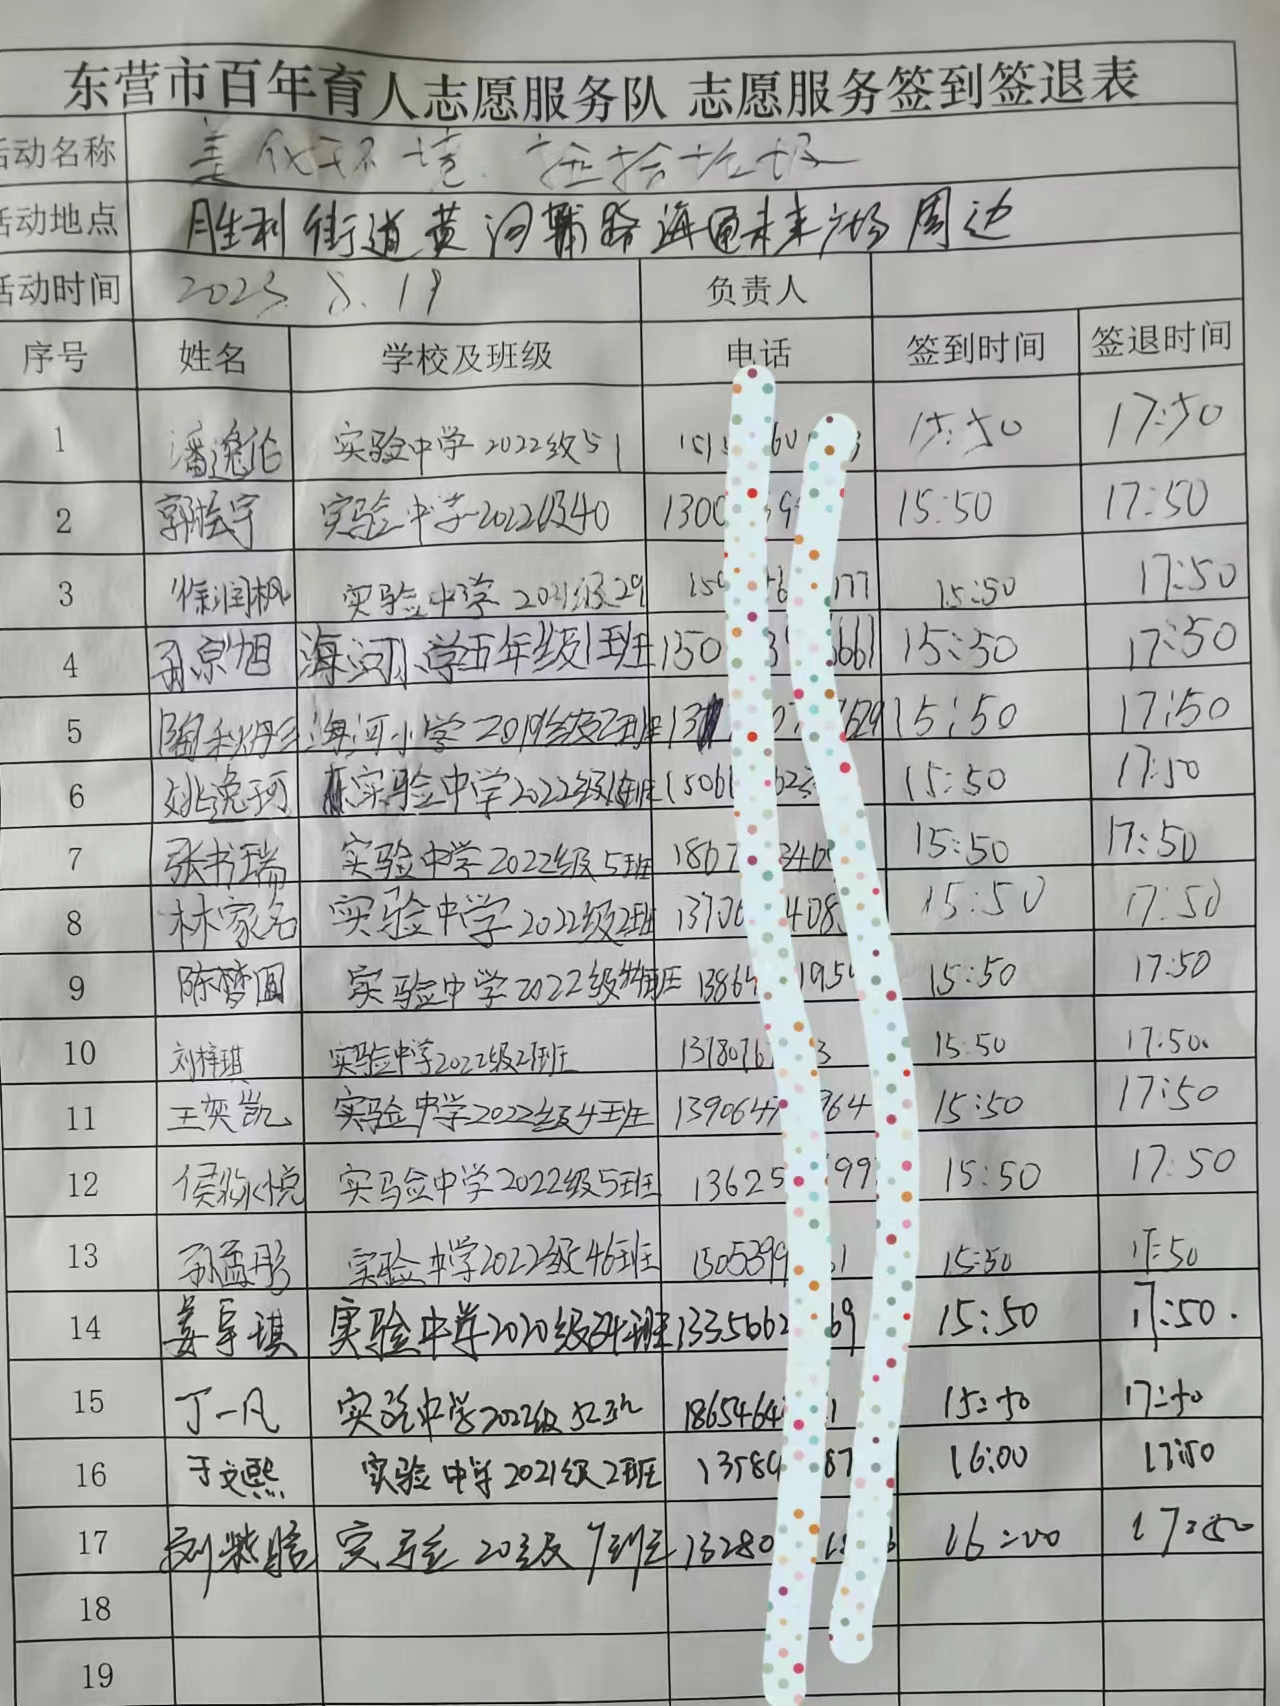 东营市百年育人志愿服务队 志愿服务签到签退表
活动名称 美化环境 捡拾垃圾
活动地点 胜利街道黄河辅路海通未来广场周边
活动时间 2023.8.19 负责人
序号 姓名 学校及班级 电话 签到时间 签退时间
1 潘逸伦 实验中学2022级51 15:50 17:50
2 郭桧宇 实验中学2022级40 1300 15:50 17:50
3 徐润枫 实验中学2021级29 177 15:50 17:50
4 孙京旭 海河小学五年级1班 150 661 15:50 17:50
5 海河小学2019级2班 13 629 15:50 17:50
6 姚逸珂 实验中学2022级班 1506 623 15:50 17:50
7 张书瑞 实验中学2022级5班 1867 346 15:50 17:50
8 林家名 实验中学2022级2班 13706 408 15:50 17:50
9 陈梦圆 实验中学2022级班 13864 195 15:50 17:50
10 刘梓琪 实验中学2022级21班 1378076 3 15:50 17:50
11 王奕凯 实验中学2022级4班 1390647 964 15:50 17:50
12 侯悦 实验中学2022级5班 13625 99 15:50 17:50
13 孙孟彤 实验中学2022级46班 1505399 1 15:50 17:50
14 姜宇琪 实验中学2020级班 1335662 69 15:50 17:50.
15 丁一凡 实验中学2022级52班 1865464 1 15:50 17:50
16 于文熙 实验中学2021级2班 13589 87 16:00 17:50
17 刘紫晗 实验20级7班 13280 16:00 17:50
18
19